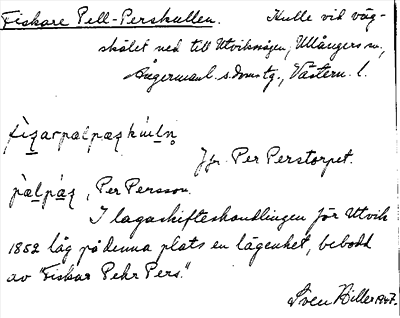 Fiskare Pell-Perskullen. Kulle vid väg-
skälet ned till Utviksvägen, Ullångers sn,
Ångermanl. s. domstg., Västern. l.
Jfr. Per Perstorpet.
, Per Persson.
I lagaskifteshandlingen för Utvik
1852 låg på denna plats en lägenhet, bebodd
av "Fiskar Pehr Pers."
Sven Hiller 1947.